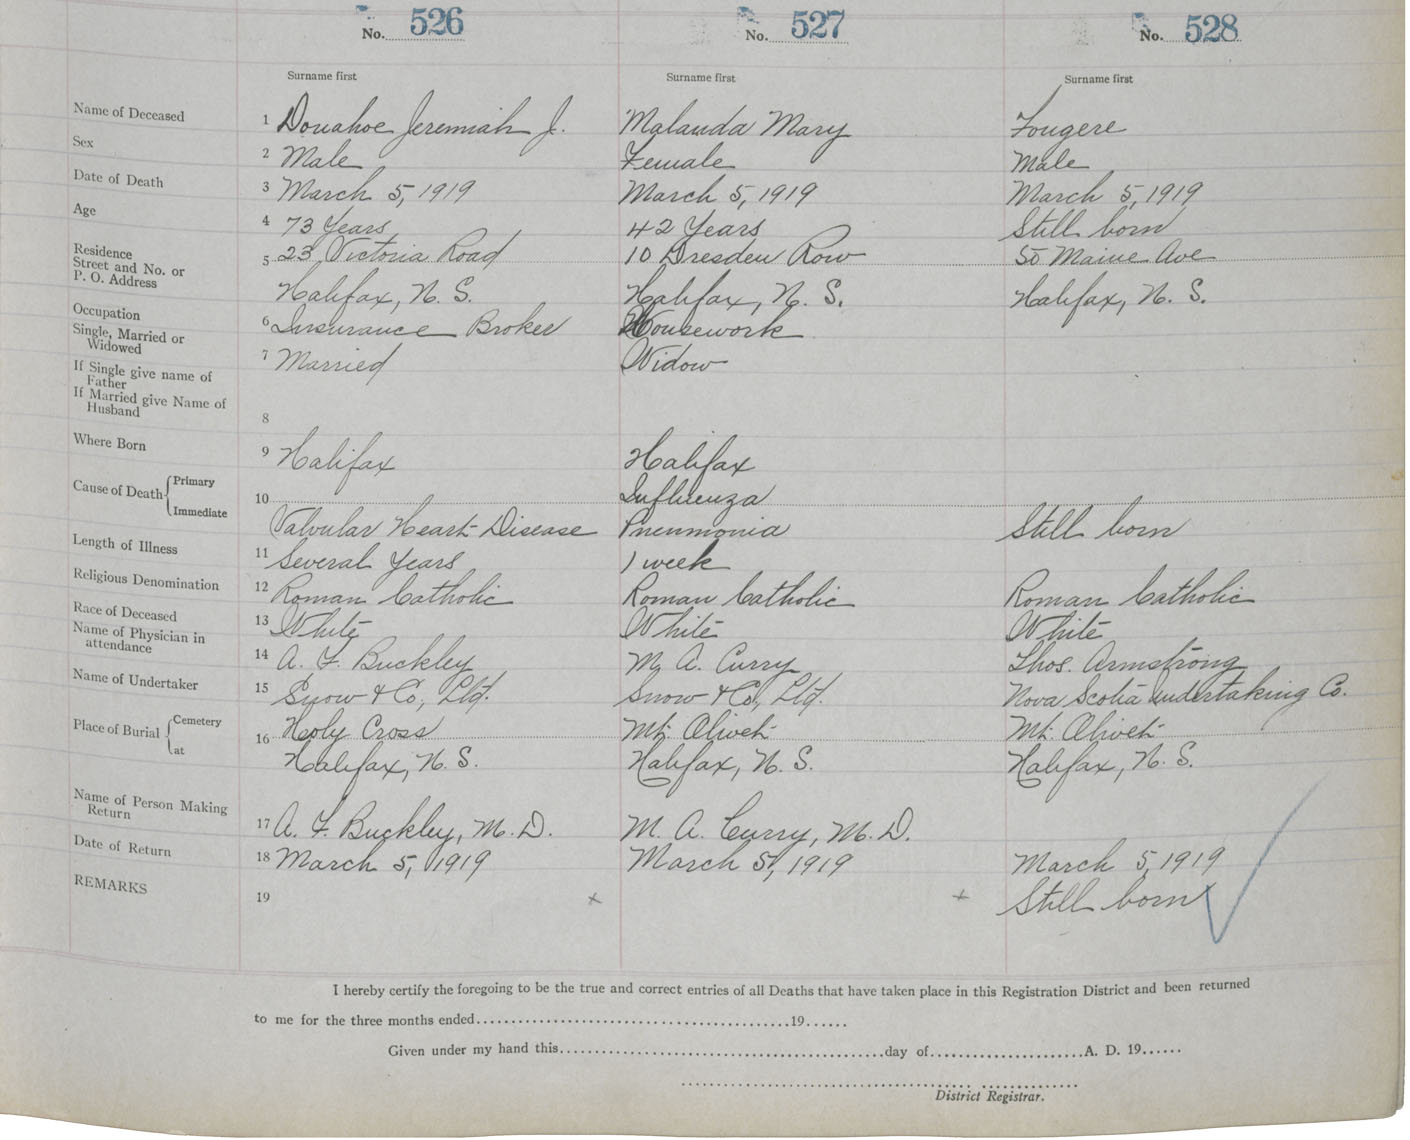 No. 526 No. 527 No. 528
Surname first Surname first Surname first
Name of Deceased 1 Donahoe Jeremiah J. Malanda Mary Fougere
Sex 2 Male Female Male
Date of Death 3 March 5, 1919 March 5, 1919 March 5, 1919
Age 4 73 Years 42 Years Still born
Residence
Street and No. or 5 23 Victoria Road 10 Dresden Row 50 Maine Ave
P. O. Address Halifax, N. S. Halifax, N. S. Halifax, N. S.
Occupation 6 Insurance Broker Housework
Single, Married or
Widowed 7 Married Widow
If Single give name of
Father
If Married give Name of
Husband 8
Where Born 9 Halifax Halifax
Cause of Death Primary 10 Influenza
Immediate Valvular Heart Disease Pneumonia Still born
Length of Illness 11 Several Years 1 week
Religious Denomination 12 Roman Catholic Roman Catholic Roman Catholic
Race of Deceased 13 White White White
Name of Physician in
attendance 14 A. F. Buckley M. A. Curry Thos. Armstrong
Name of Undertaker 15 Snow & Co, Ltd. Snow & Co, Ltd. Nova Scotia Undertaking Co.
Place of Burial Cemetery 16 Holy Cross Mt. Olivet Mt. Olivet
at Halifax, N. S. Halifax, N. S. Halifax, N. S.
Name of Person Making
Return 17 A. F. Buckley, M. D. M. A. Curry, M. D.
Date of Return 18 March 5, 1919 March 5, 1919 March 5, 1919
REMARKS 19 x + Still born
I hereby certify the foregoing to be the true and correct entries of all Deaths that have taken place in this Registration District and been returned
to me for the three months ended.............................................19......
Given under my hand this..............................................day of......................A. D. 19......
District Registrar.